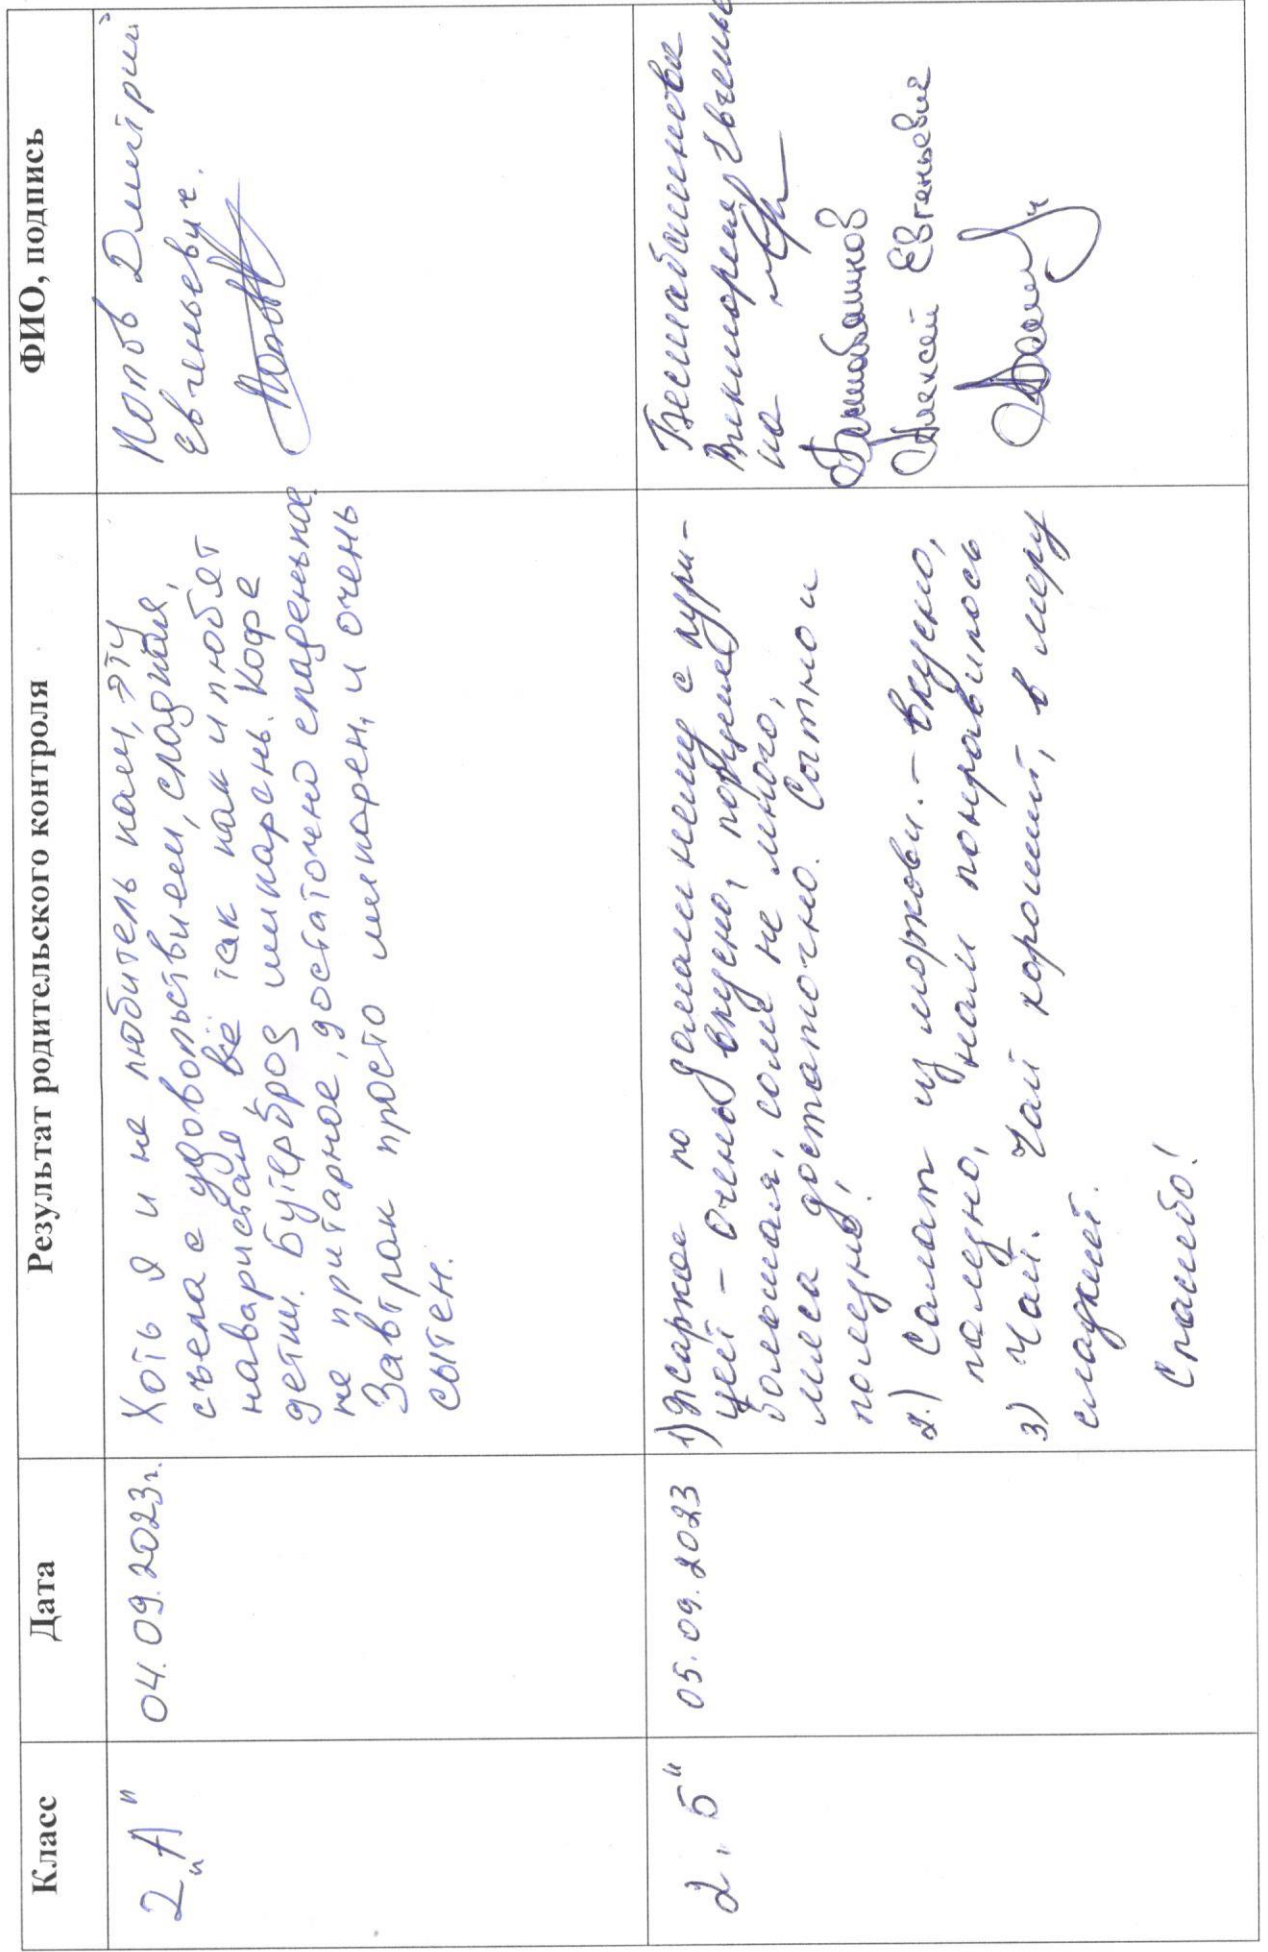 Класс
Дата
Результат родительского контроля
ФИО, подпись
2 "А"
04.09.2023г.
Хоть я и не любитель каш, эту
съела с удовольствием, сладкая,
наваристая всё так как и любят
детки. Бутерброд шикарень. Кофе
не приторное, достаточно сладенькое
Завтрак просто шикарен, и очень
сытен.
Попов Дмитрий
Евгеньевич.
2 "Б"
05.09.2023
1) Жаркое по домашнему с кури-
цей - очень вкусно, порция
большая, соли не много,
мяса достаточно. Сытно и
полезно!
2.) Салат из моркови. - вкусно,
полезно, нам понравилось
3) Чай. Чай хороший, в меру
сладкий.
Спасибо!
Бесштабашнова
Виктория Евгенье
на
Алексей Евгеньевич